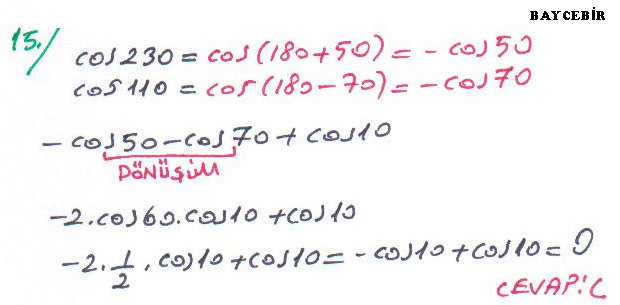 BAYCEBİR
15./
cos230 = cos(180+50) = - cos50
cos110 = cos(180-70) = -cos70
- cos50 - cos70 + cos10
DÖNÜŞÜM
-2.cos60.cos10 + cos10
-2.1/2.cos10 + cos10 = - cos10 + cos10 = 0
CEVAP: C